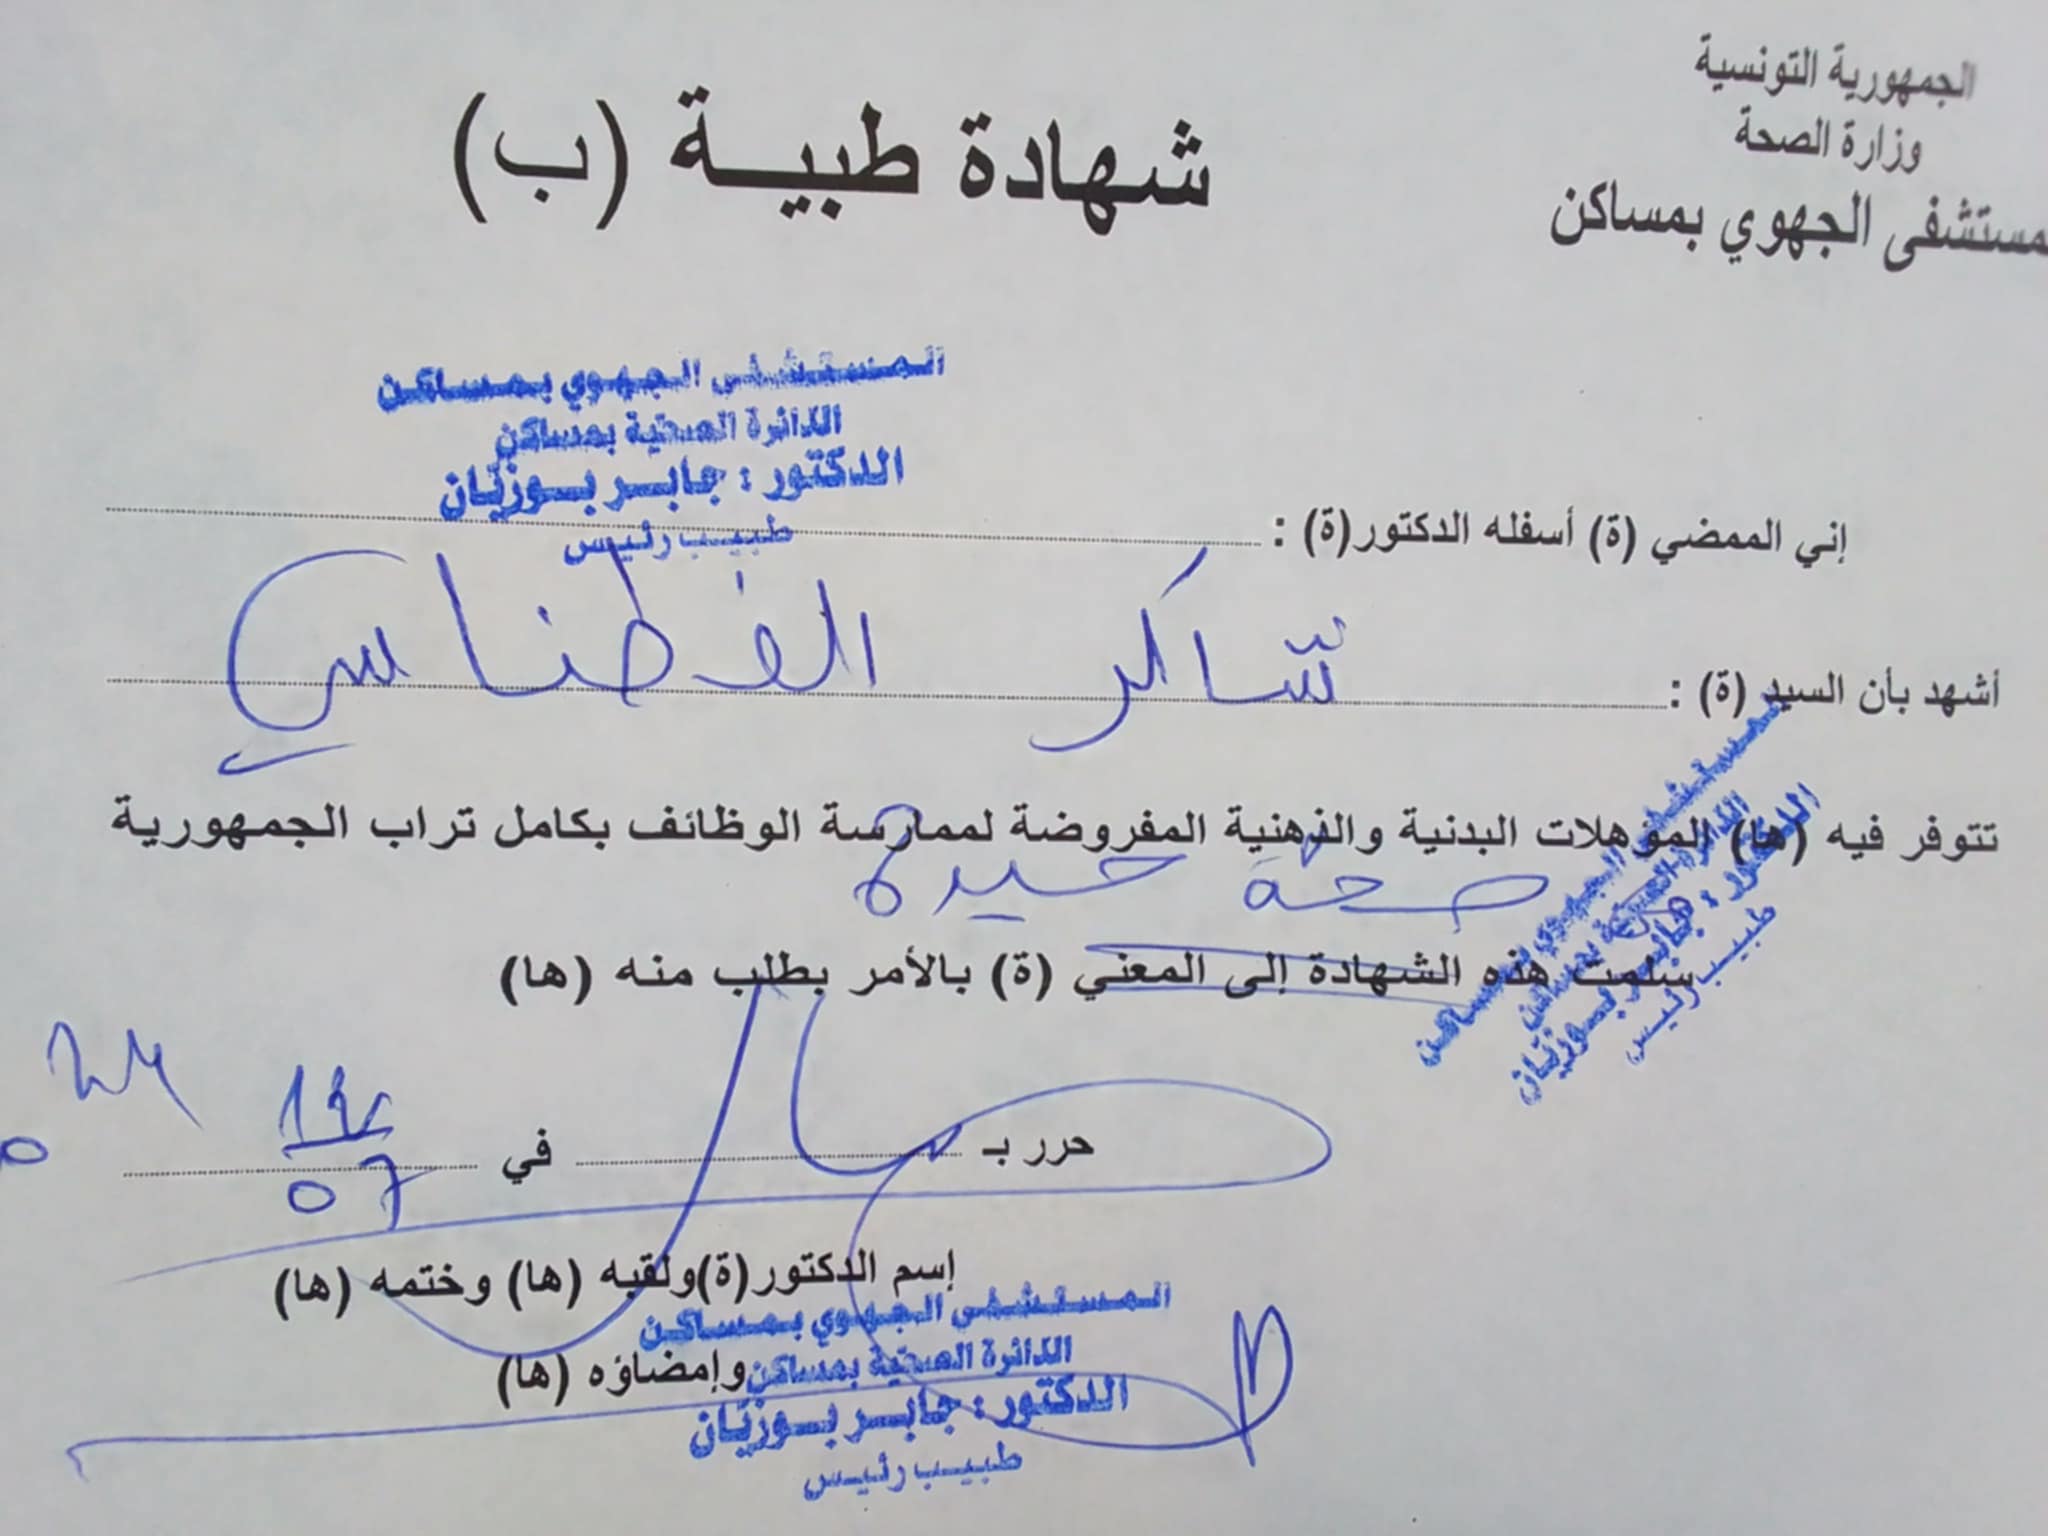 الجمهورية التونسية
وزارة الصحة
مستشفى الجهوي بمساكن
شهادة طبيـــة (ب)
المستشفى الجهوي بمساكن
الدائرة الصحية بمساكن
الدكتور : جابر بوزيّان
طبيب رئيس
إني الممضي (ة) أسفله الدكتور(ة) :
أشهد بأن السيد (ة) : شاكر الفطناسي
تتوفر فيه (ها) المؤهلات البدنية والذهنية المفروضة لممارسة الوظائف بكامل تراب الجمهورية
صحة جيدة
المستشفى الجهوي بمساكن
الدائرة الصحية بمساكن
الدكتور : جابر بوزيّان
طبيب رئيس
سلمت هذه الشهادة إلى المعني (ة) بالأمر بطلب منه (ها)
حرر بـ في
07
إسم الدكتور(ة)ولقبه (ها) وختمه (ها)
وإمضاؤه (ها)
المستشفى الجهوي بمساكن
الدائرة الصحية بمساكن
الدكتور : جابر بوزيّان
طبيب رئيس